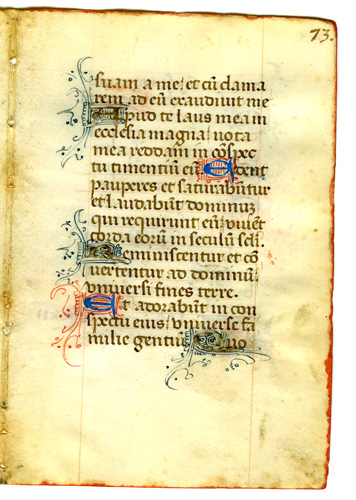 73.
suam a me/ et cū clama
rem ad eū exaudiuit me
Apud te laus mea in
ecclesia magna/ uota
mea reddam in cōspec
tu timentiū eū Edent
pauperes et saturabūtur
et laudabūt dominuʒ
qui requirunt eū/ viuēt
corda eorū in seculū scl̄i.
Reminiscentur et cō
uertentur ad dominū
vniuersi fines terre.
Et adorabūt in con
spectu eius/ vniuerse fa
milie gentiū Quo